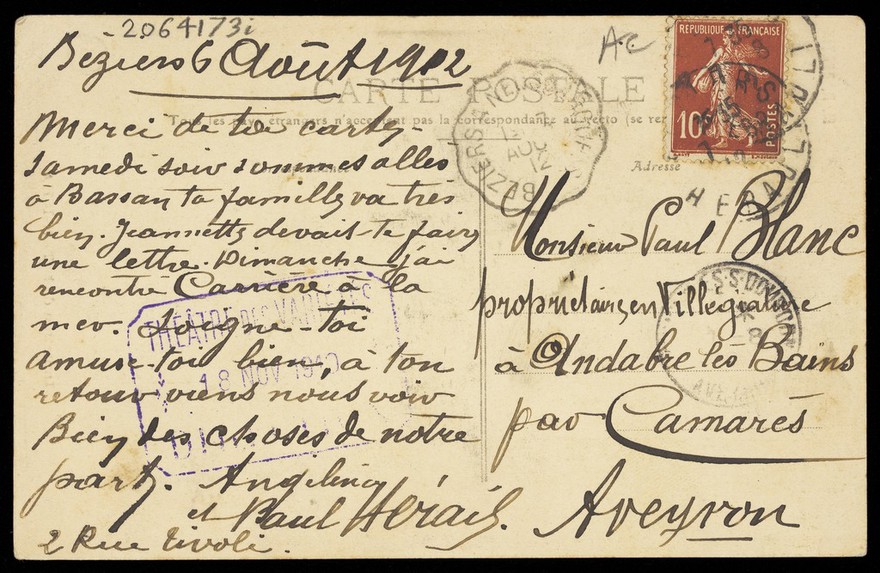 2064173i
Beziers 6 Août 1912
AC
CARTE POSTALE
Tous les pays étrangers n'acceptent pas la correspondance au recto (se
Merci de ta carte-
samedi soir sommes allés
à Bassan ta famille va très
bien. Jeannette devait te faire
une lettre. Dimanche j'ai
rencontré Carrière à la
mer. Soigne-toi
amuse-toi bien, à ton
retour viens nous voir
Bien des choses de notre
part. Angelina
et Paul Hérail.
2 Rue Tivoli.
THÉATRE DES VARIÉTÉS
18 NOV 1910
REPUBLIQUE FRANÇAISE
10
POSTES
BEZIERS
AOU
12
HERA
Adresse
Monsieur Paul Blanc
propriétaire en Villégiature
à Andabre les Bains
par Camarès
Aveyron